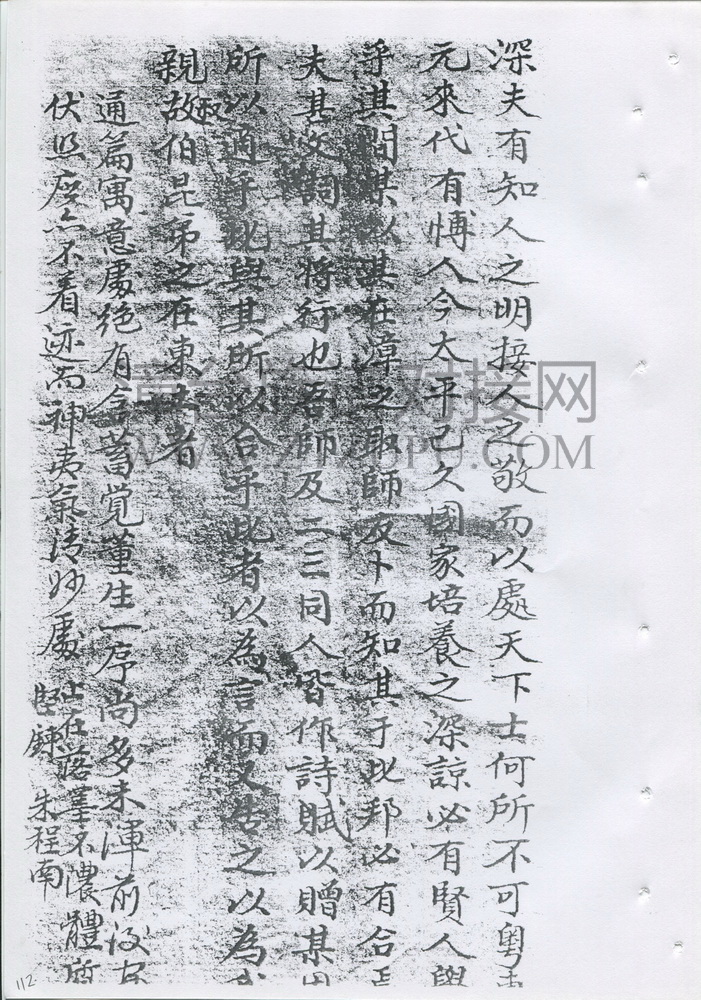 深夫有知人之明接人之敬而以處天下士何所不可粤
元來代有博人今太平已久國家培養之深諒必有賢人與
乎淇間某以其在漳之取師及卜而知其于此邦必有合焉
夫其文詞其將行也吾師及二三同人皆作詩賦以贈某
所以適乎此與其所以合乎此者以為言而又告之以為我
親故叔伯昆弟之在東土者
通篇寓意處絶有含蓄覺董生一序尚多未渾前後
伏照處亦不看迹而神夷氣清妙處
占在落墨不濃體質
堅鍊 朱程南
112